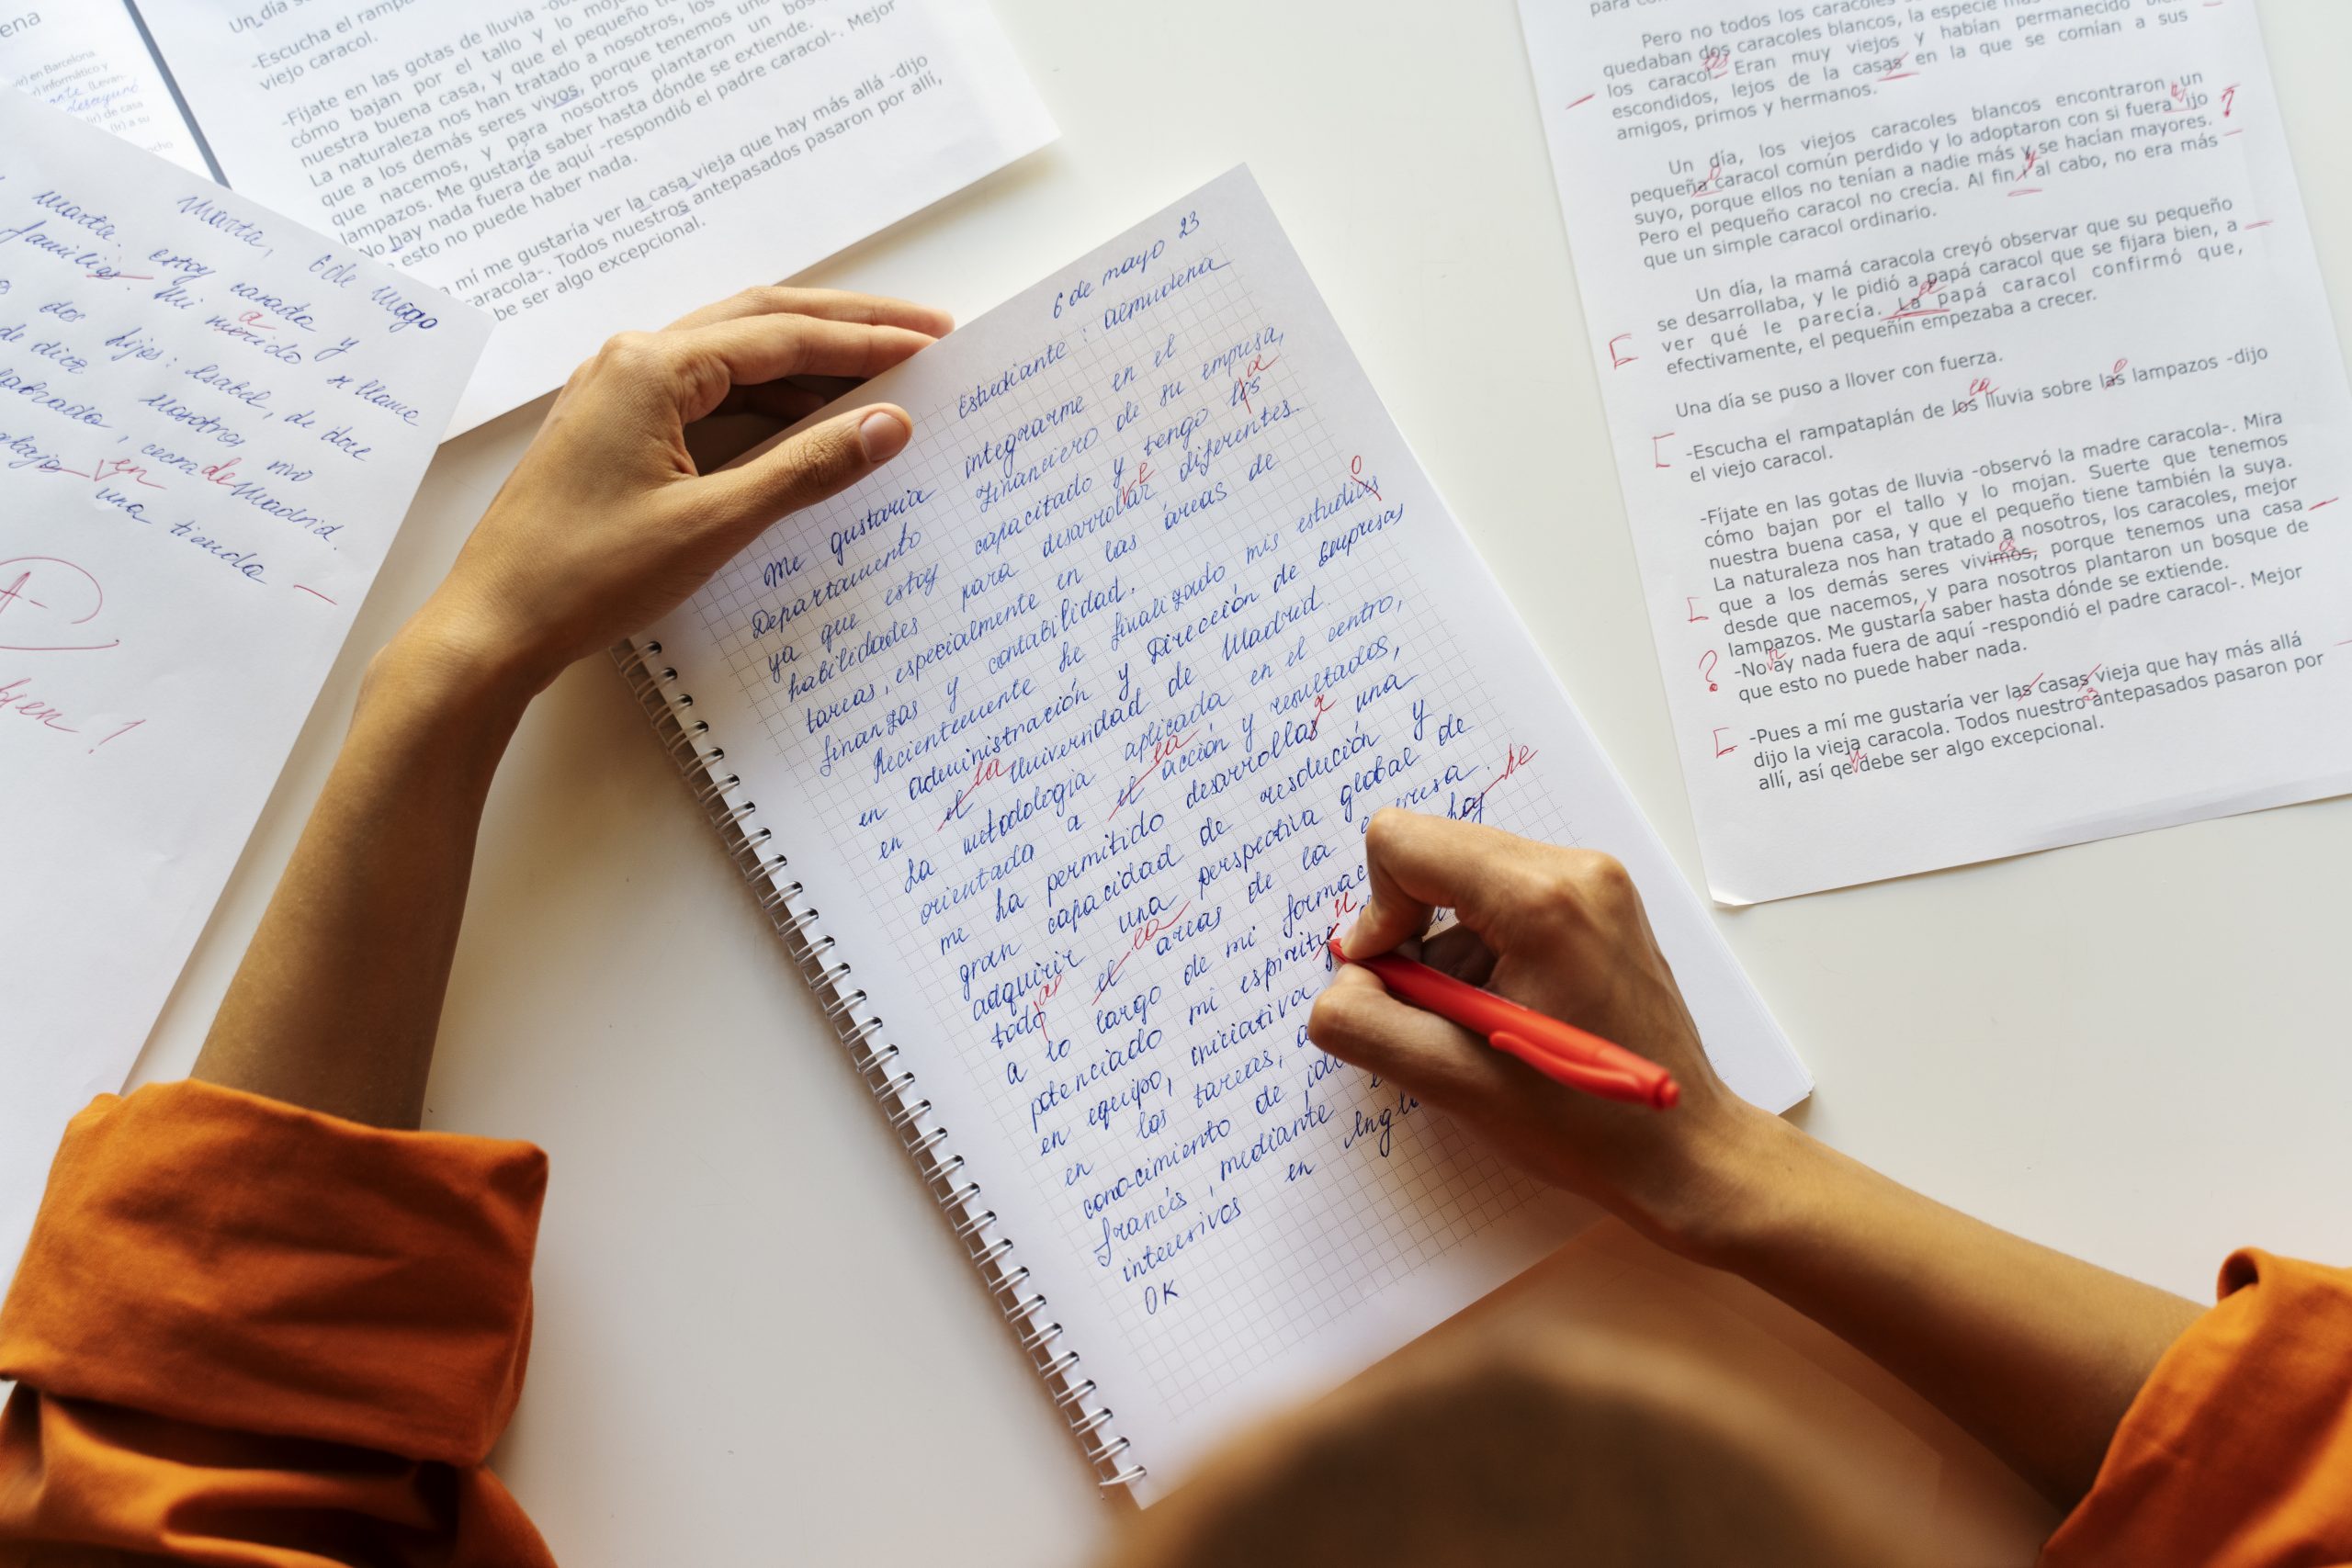 ena
vir) en Barcelona
r) informático y
(Levan-
desayunó
(ir) de casa
(ir) a su
Un día s
-Escucha el rampa
viejo caracol.
-Fíjate en las gotas de lluvia -ob
cómo bajan por el tallo y lo moja
nuestra buena casa, y que el pequeño
La naturaleza nos han tratado a nosotros, los
que a los demás seres vivos, porque tenemos una
que nacemos, y para nosotros plantaron un bosq
lampazos. Me gustaría saber hasta dónde se extiende.
No hay nada fuera de aquí -respondió el padre caracol-. Mejor
esto no puede haber nada.
a mí me gustaría ver la casa vieja que hay más allá -dijo
caracola-. Todos nuestros antepasados pasaron por allí,
be ser algo excepcional.
Marta, 6 de mayo
Marta. estoy casada y
familia. Mi marido se llama
a
dos hijos: Isabel, de doce
de diez
nosotros vivo
cerca de Madrid.
en una tienda
A-
bien!
6 de mayo 23
Estudiante: Almudena
Me gustaria integrarme en el
Departamento Financiero de su empresa,
ya que estoy capacitado y tengo los
a
habilidades para desarrollar diferentes
tareas, especialmente en las áreas de
finanzas y contabilidad.
Recientemente he finalizado mis estudias
o
en administración y Dirección de Empresas
en el Universidad de Madrid.
la
La metodologia aplicada en el centro,
orientada a el acción y resultados,
la
me ha permitido desarrollas una
r
gran capacidad de resolución y
adquirir una perspectiva global de
todo el areas de la empresa.
as la
a lo largo de mi formac hay
he
potenciado mi espiritu
u
en equipo, iniciativa
en las tareas, a
conocimiento de idi
francés, mediante e
intensivos en Ingl
OK
Pero no todos los caracoles
quedaban dos caracoles blancos, la especie más
los caracol. Eran muy viejos y habían permanecido
escondidos, lejos de la casas en la que se comían a sus
amigos, primos y hermanos.
Un día, los viejos caracoles blancos encontraron un
pequeña caracol común perdido y lo adoptaron con si fuera ijo
o
suyo, porque ellos no tenían a nadie más y se hacían mayores.
?
Pero el pequeño caracol no crecía. Al fin y al cabo, no era más
que un simple caracol ordinario.
Un día, la mamá caracola creyó observar que su pequeño
se desarrollaba, y le pidió a papá caracol que se fijara bien, a
ver qué le parecía. La papá caracol confirmó que,
efectivamente, el pequeñín empezaba a crecer.
Una día se puso a llover con fuerza.
-Escucha el rampataplán de los lluvia sobre las lampazos -dijo
la o
el viejo caracol.
-Fíjate en las gotas de lluvia -observó la madre caracola-. Mira
cómo bajan por el tallo y lo mojan. Suerte que tenemos
nuestra buena casa, y que el pequeño tiene también la suya.
La naturaleza nos han tratado a nosotros, los caracoles, mejor
que a los demás seres vivimos, porque tenemos una casa
desde que nacemos, y para nosotros plantaron un bosque de
lampazos. Me gustaría saber hasta dónde se extiende.
?
-No ay nada fuera de aquí -respondió el padre caracol-. Mejor
que esto no puede haber nada.
-Pues a mí me gustaría ver las casas vieja que hay más allá
dijo la vieja caracola. Todos nuestro antepasados pasaron por
s
allí, así qe debe ser algo excepcional.